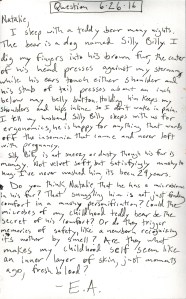 Question 6.26.16
Natalie,
I sleep with a teddy bear many nights.
The bear is a dog named Silly Billy. I
dig my fingers into his brown fur, the center
of his head presses against my sternum
while his ears touch either shoulder and
his stub of tail presses about an inch
below my belly button. Holding him keeps my
shoulders and hips in line so I don't wake in pain.
I tell my husband Silly Billy sleeps with us for
ergonomics, he is happy for anything that wards
off the insomnia that came and never left
with pregnancy.
Silly Billy is not sneezy or dusty though his fur is
mangy. Not velvet soft, but satisfyingly nubby to
hug. I've never washed him, he's been 29 years.
Do you think, Natalie, that he has a microbiome
in his fur? That snuggling him is not just finding
comfort in a mangy personification? Could the
microbes of my childhood teddy bear be the
secret of his comfort? Or do they trigger
memories of safety, like a newborn recognizing
its mother by smell? Are they what
makes my childhood self seem like
an inner layer of skin, just moments
ago, fresh blood?
- E.A.